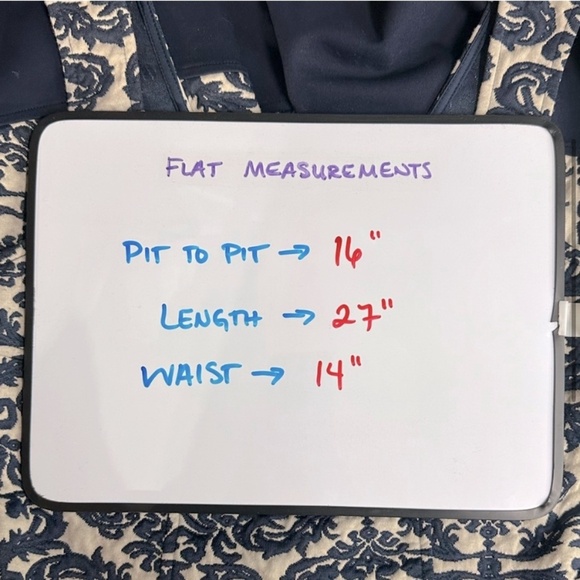 FLAT MEASUREMENTS
PIT TO PIT → 16"
LENGTH → 27"
WAIST → 14"